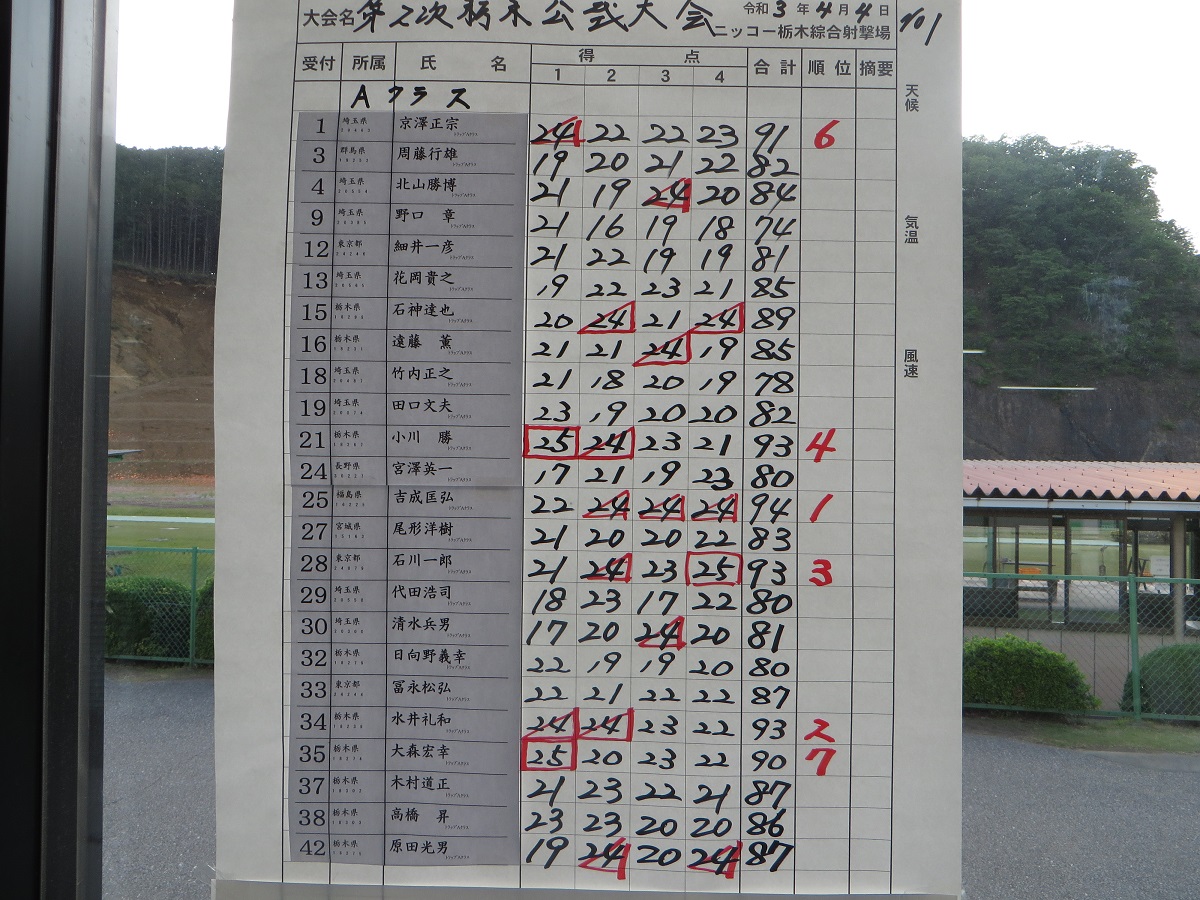 大会名 第2次栃木公式大会 令和 3 年 4 月 4 日 No 1
ニッコー栃木綜合射撃場
受付 所属 氏 名 得 点 合計 順位 摘要
1 2 3 4
天候
気温
風速
Aクラス
1 埼玉県 京澤正宗 24 22 22 23 91 6
3 群馬県 周藤行雄 19 20 21 22 82
4 埼玉県 北山勝博 21 19 24 20 84
9 埼玉県 野口 章 21 16 19 18 74
12 東京都 細井一彦 21 22 19 19 81
13 埼玉県 花岡貴之 19 22 23 21 85
15 栃木県 石神達也 20 24 21 24 89
16 栃木県 遠藤 薫 21 21 24 19 85
18 埼玉県 竹内正之 21 18 20 19 78
19 埼玉県 田口文夫 23 19 20 20 82
21 栃木県 小川 勝 25 24 23 21 93 4
24 長野県 宮澤英一 17 21 19 23 80
25 福島県 吉成匡弘 22 24 24 24 94 1
27 宮城県 尾形洋樹 21 20 20 22 83
28 東京都 石川一郎 21 24 23 25 93 3
29 埼玉県 代田浩司 18 23 17 22 80
30 埼玉県 清水兵男 17 20 24 20 81
32 栃木県 日向野義幸 22 19 19 20 80
33 東京都 冨永松弘 22 21 22 22 87
34 栃木県 水井礼和 24 24 23 22 93 2
35 栃木県 大森宏幸 25 20 23 22 90 7
37 栃木県 木村道正 21 23 22 21 87
38 栃木県 高橋 昇 23 23 20 20 86
42 栃木県 原田光男 19 24 20 24 87